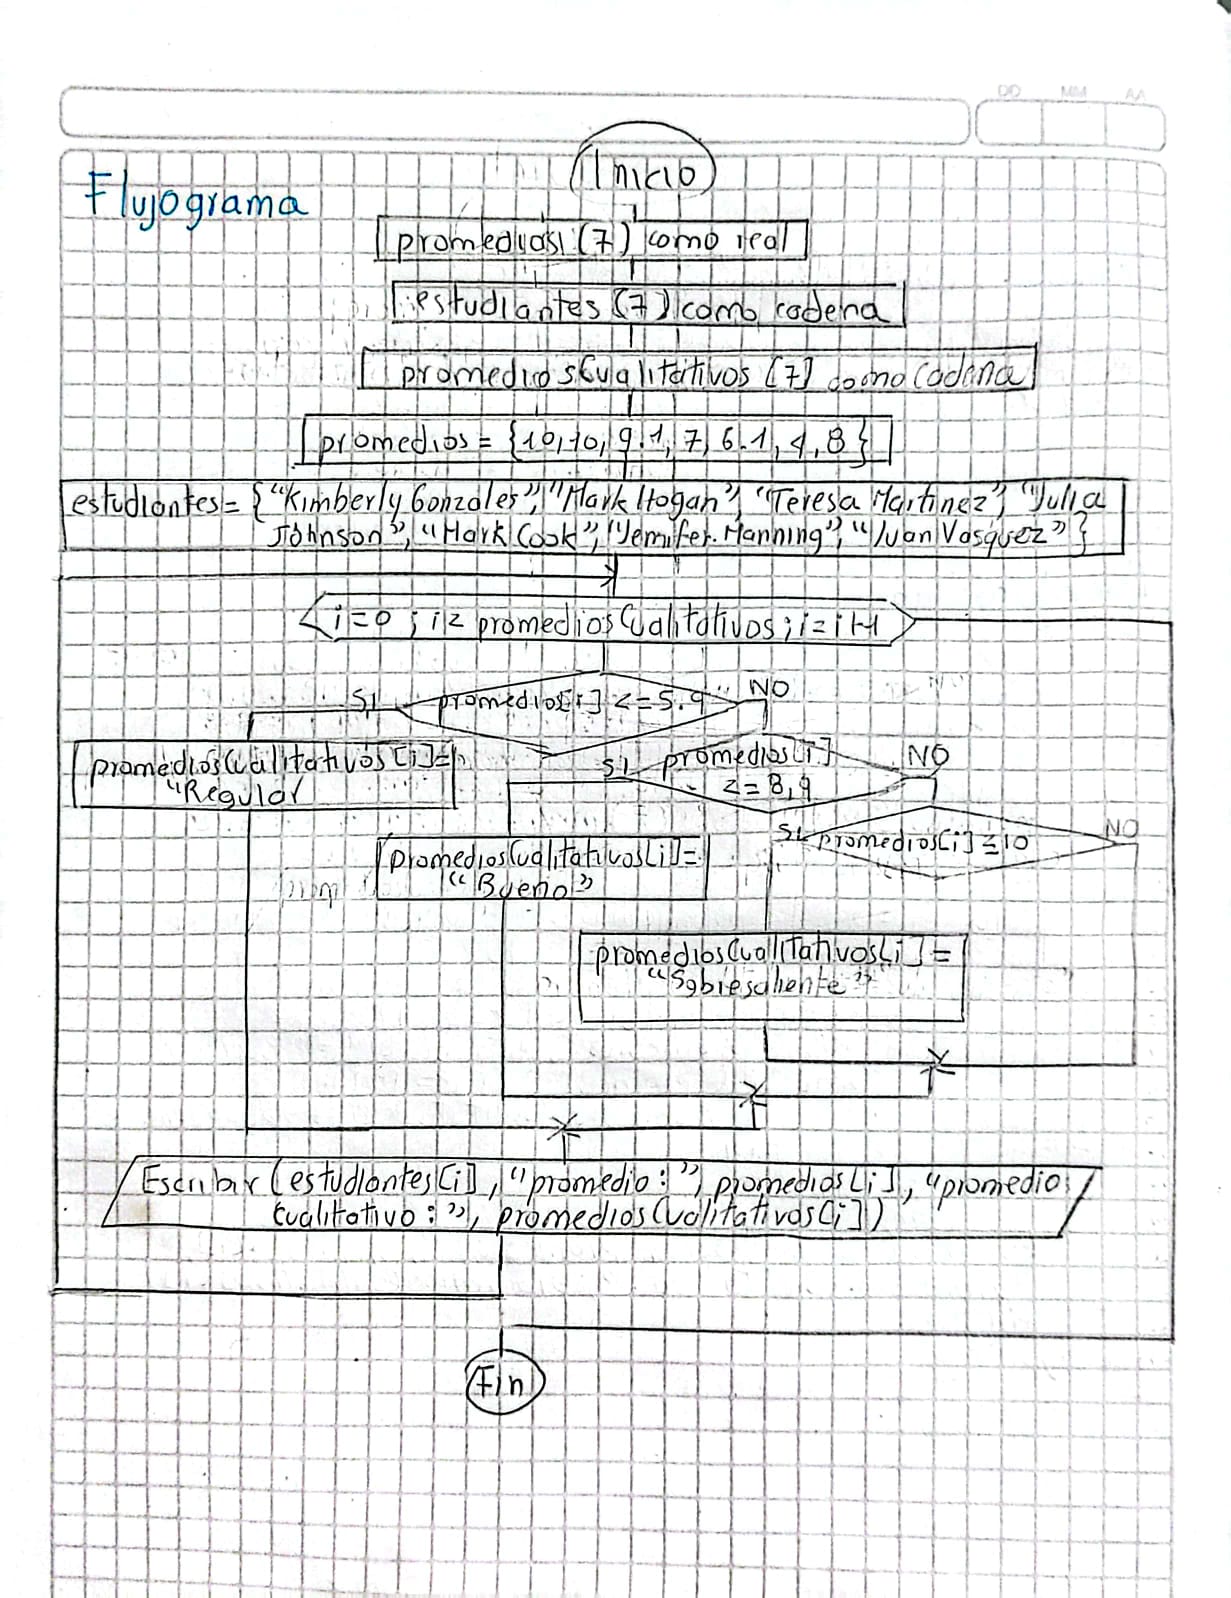 DD MM AA
Flujograma
Inicio
promedios (7) como real
estudiantes (7) como cadena
promediosCualitativos [7] como cadena
promedios = {10, 10, 9.1, 7, 6.1, 4, 8}
estudiantes = {"Kimberly Gonzales", "Mark Hogan", "Teresa Martinez", "Julia
Johnson", "Mark Cook", "Jennifer Manning", "Juan Vasquez"}
i=0 ; i< promediosCualitativos ; i=i+1
SI promedios[i] <=5.9 NO
promediosCualitativos[i]=
"Regular
SI promedios[i] NO
<=8,9
SI promedios[i] ≤10 NO
promediosCualitativos[i]=
"Bueno"
promediosCualitativos[i]=
"Sobresaliente"
Escribir (estudiantes[i], "promedio:", promedios[i], "promedio
cualitativo:", promediosCualitativos[i])
Fin